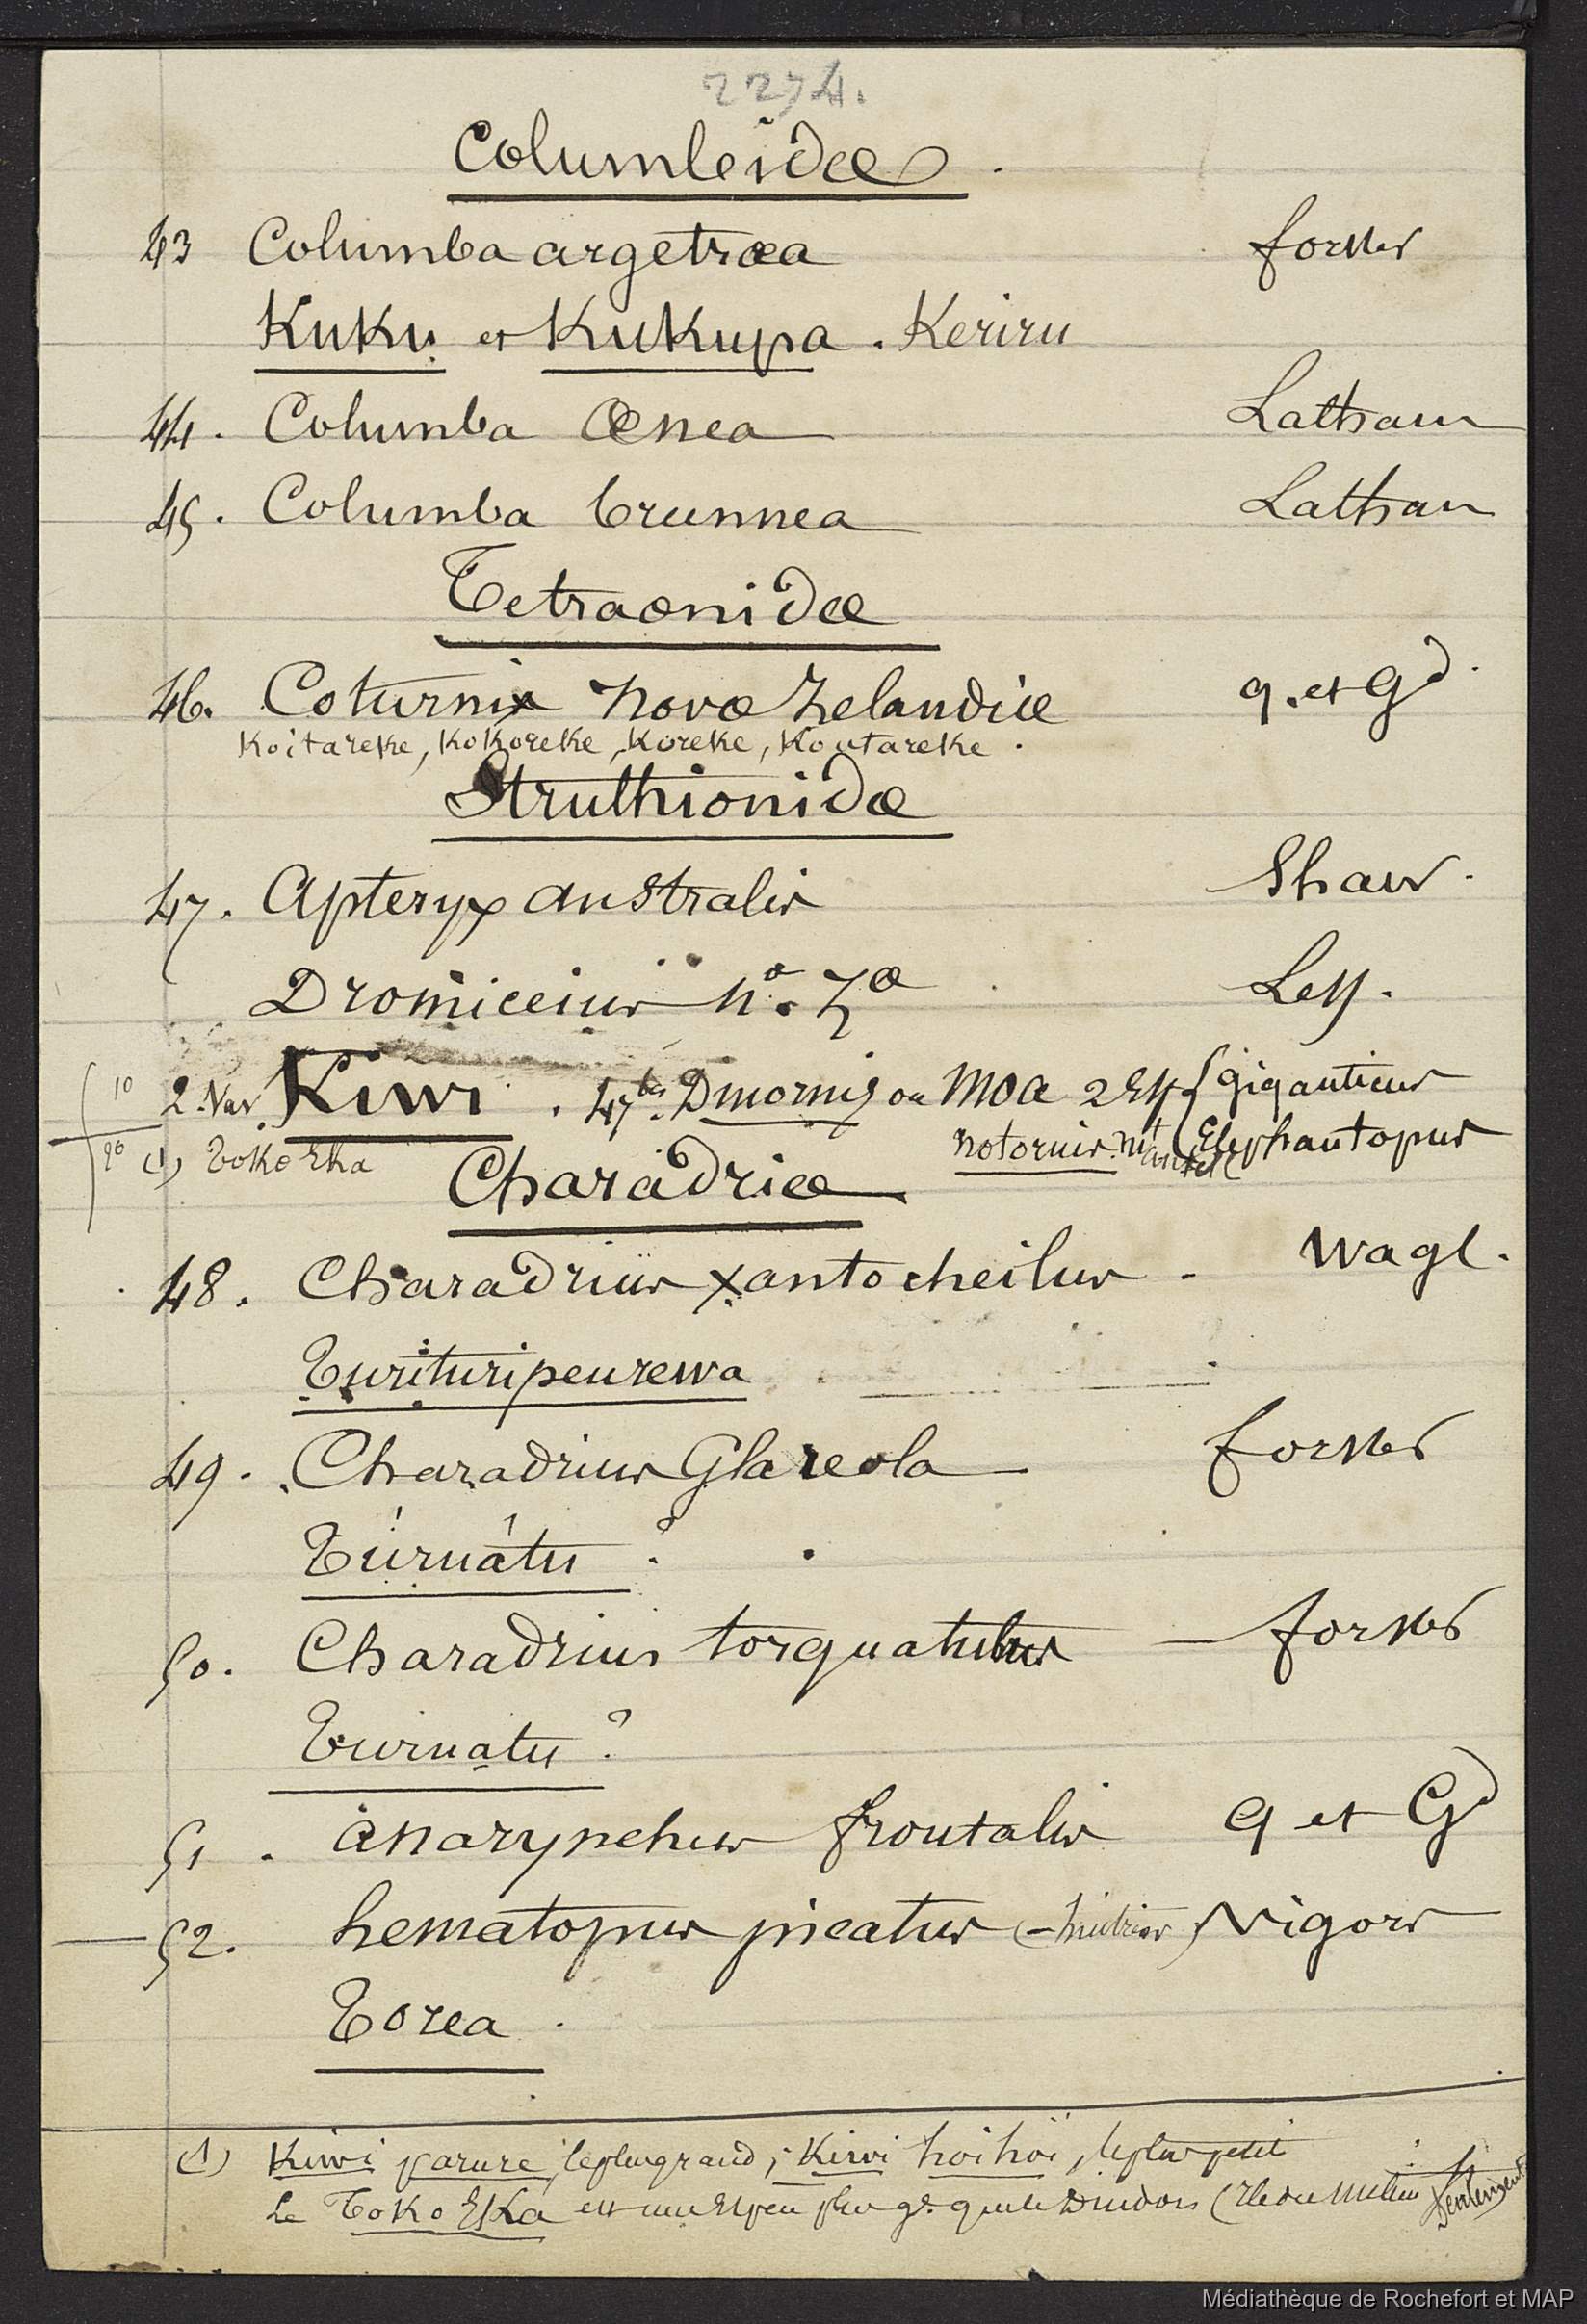 2274.
Columbeidæ.
43 Columba argetræa forster
Kuku et Kukupa. Keriru
44. Columba Œnea Latham
45. Columba brunnea Latham
Tetraonidæ
46. Coturnix novæ Zelandiæ q. et Gd.
Koitareke, Kokoreke, Koreke, Koutareke.
Struthionidæ
47. Apteryx australis Shaw.
Dromiceius næ. Zæ Less.
10 2. Var Kiwi. 47bis. Dinornis ou Moa 2 Esp { giganticus
20 (1) Toko Eka notornis. Elephantopus
Charadriæ
48. Charadrius xantocheilus - Wagl.
Turituripeurewa
49. Charadrius Glareola forster
Túruátu ?
50. Charadrius torquatulus forster
Turuatu ?
51. anarynchus frontalis q et Gd
52. hematopus picatus (huitrier) Vigors
Torea.
(1) Kiwi parure, le plus grand; Kiwi hoihoi, le plus petit
Le Toko Eka est une Esp un peu plus gd. que le Dindon (Ile du Milieu seulement
Médiathèque de Rochefort et MAP